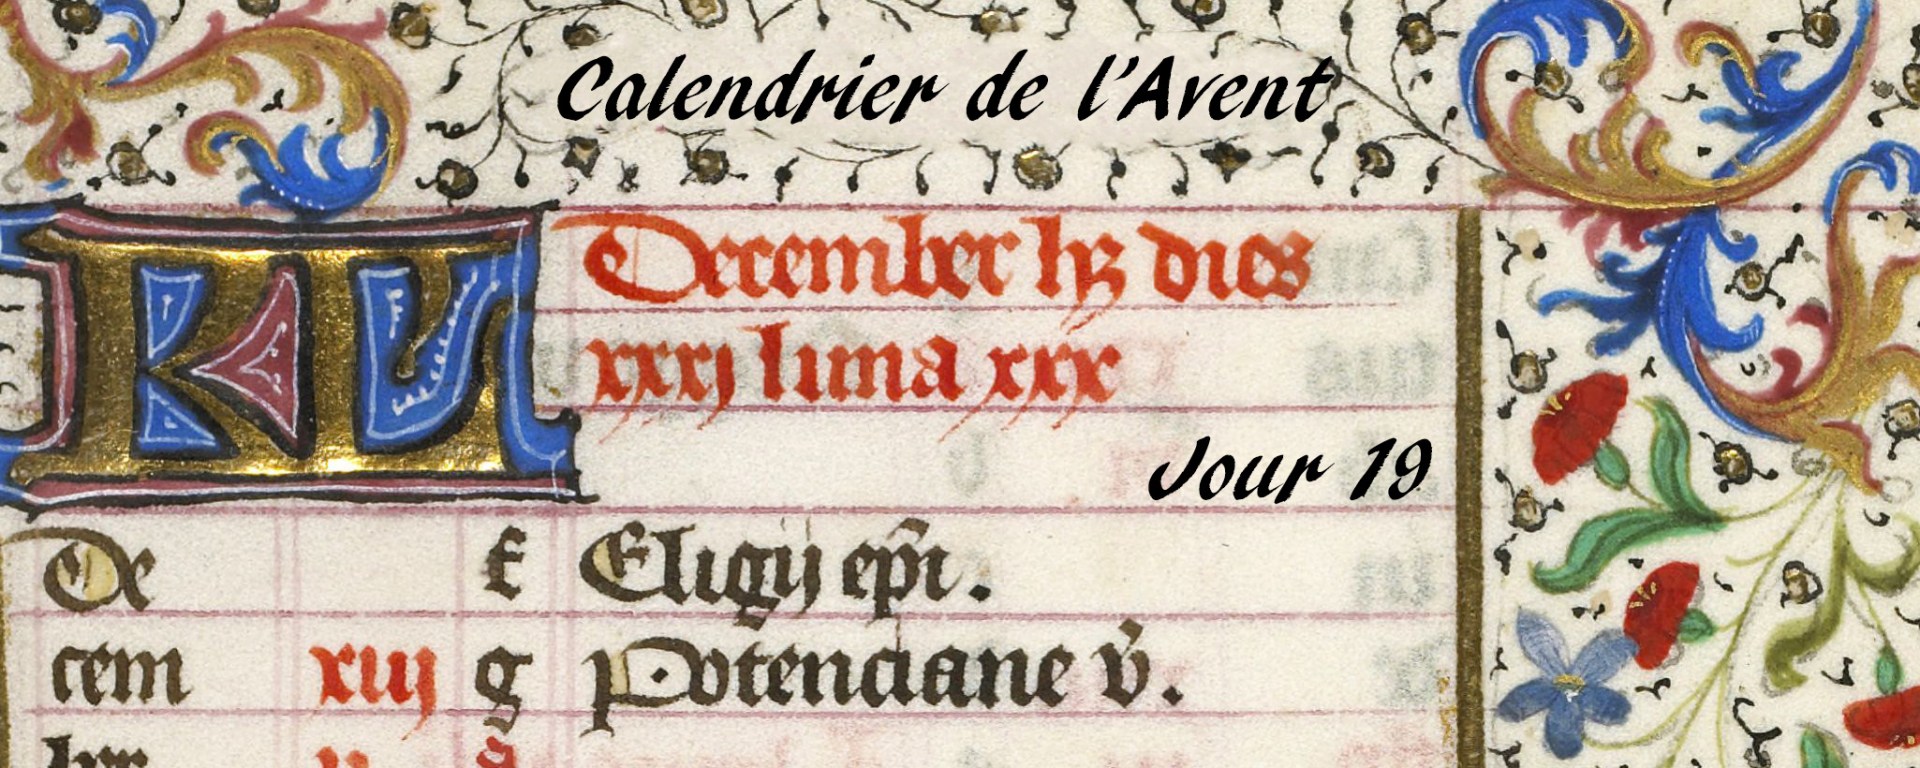 Calendrier de l'Avent
KL December hz dies
xxxj luna xxx
Jour 19
De f Eligij epi.
cem xiij g Potenciane v.